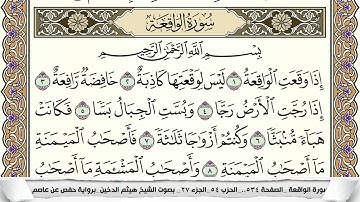 سُورَةُ الوَاقِعَةِ
بِسْمِ اللَّهِ الرَّحْمَٰنِ الرَّحِيمِ
إِذَا وَقَعَتِ الْوَاقِعَةُ ١ لَيْسَ لِوَقْعَتِهَا كَاذِبَةٌ ٢ خَافِضَةٌ رَّافِعَةٌ ٣
إِذَا رُجَّتِ الْأَرْضُ رَجًّا ٤ وَبُسَّتِ الْجِبَالُ بَسًّا ٥ فَكَانَتْ
هَبَاءً مُّنبَثًّا ٦ وَكُنتُمْ أَزْوَاجًا ثَلَاثَةً ٧ فَأَصْحَابُ الْمَيْمَنَةِ
مَا أَصْحَابُ الْمَيْمَنَةِ ٨ وَأَصْحَابُ الْمَشْأَمَةِ مَا أَصْحَابُ
سورة الواقعة _الصفحة ٥٣٤_ الحزب ٥٤_الجزء ٢٧_ بصوت الشيخ هيثم الدخين _برواية حفص عن عاصم